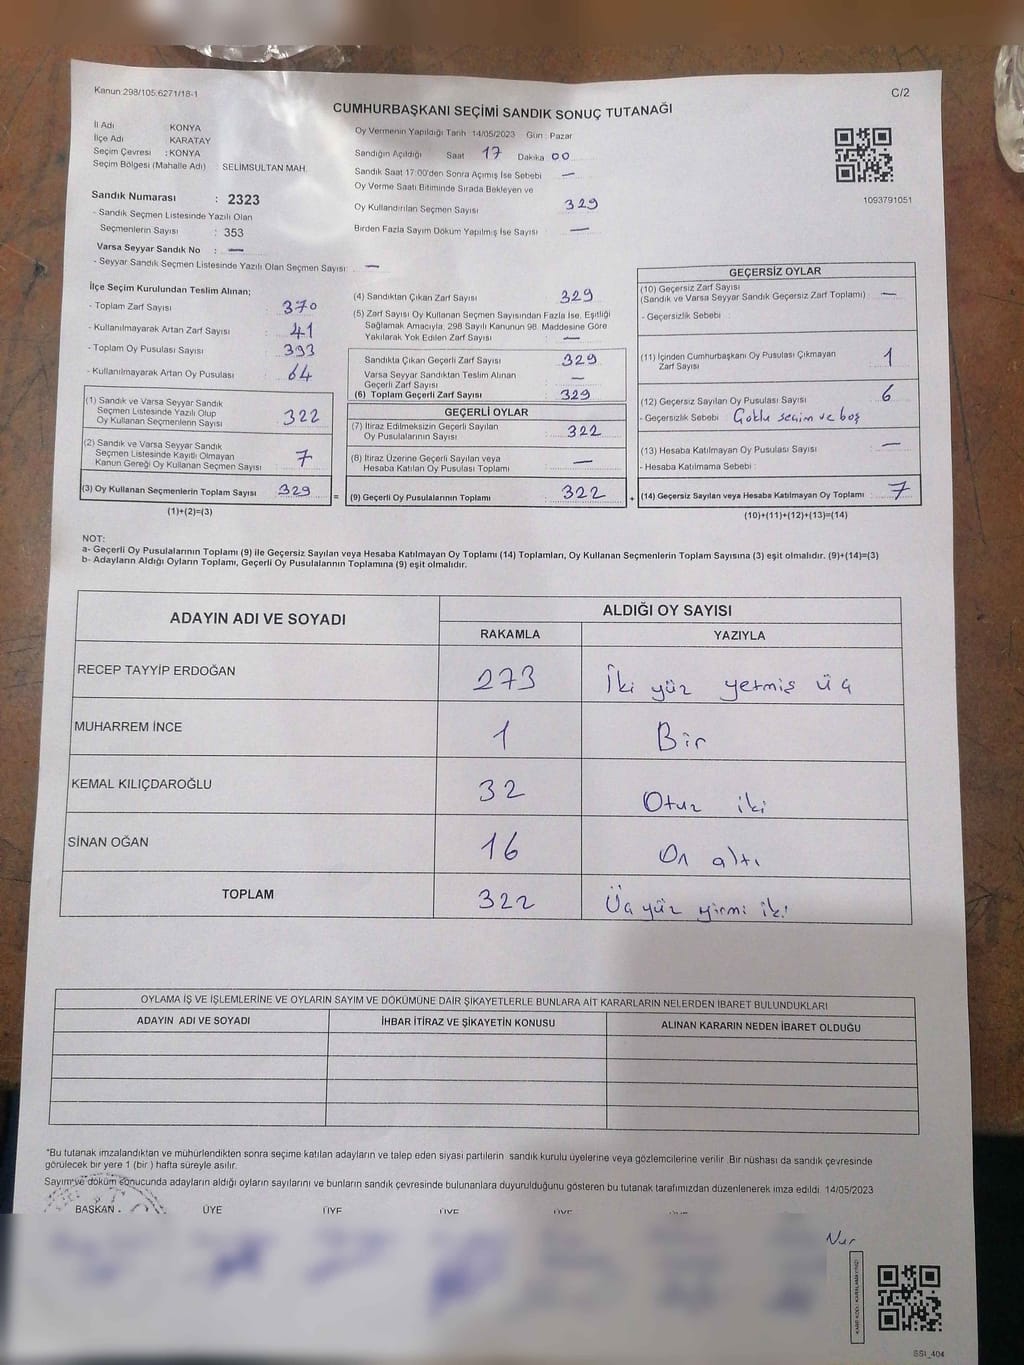 Kanun 298/105:6271/18-1
C/2
CUMHURBAŞKANI SEÇİMİ SANDIK SONUÇ TUTANAĞI
İl Adı KONYA
İlçe Adı KARATAY
Seçim Çevresi : KONYA
Seçim Bölgesi (Mahalle Adı) : SELİMSULTAN MAH.
Sandık Numarası : 2323
- Sandık Seçmen Listesinde Yazılı Olan
Seçmenlerin Sayısı : 353
Varsa Seyyar Sandık No : —
- Seyyar Sandık Seçmen Listesinde Yazılı Olan Seçmen Sayısı: —
Oy Vermenin Yapıldığı Tarih 14/05/2023 Gün : Pazar
Sandığın Açıldığı Saat 17 Dakika 00
Sandık Saat 17:00'den Sonra Açımış İse Sebebi —
Oy Verme Saati Bitiminde Sırada Bekleyen ve
Oy Kullandırılan Seçmen Sayısı 329
Birden Fazla Sayım Döküm Yapılmış İse Sayısı —
1093791051
İlçe Seçim Kurulundan Teslim Alınan;
- Toplam Zarf Sayısı : 370
- Kullanılmayarak Artan Zarf Sayısı : 41
- Toplam Oy Pusulası Sayısı : 393
- Kullanılmayarak Artan Oy Pusulası : 64
(1) Sandık ve Varsa Seyyar Sandık
Seçmen Listesinde Yazılı Olup
Oy Kullanan Seçmenlerin Sayısı : 322
(2) Sandık ve Varsa Seyyar Sandık
Seçmen Listesinde Kayıtlı Olmayan
Kanun Gereği Oy Kullanan Seçmen Sayısı : 7
(3) Oy Kullanan Seçmenlerin Toplam Sayısı : 329
(1)+(2)=(3)
(4) Sandıktan Çıkan Zarf Sayısı : 329
(5) Zarf Sayısı Oy Kullanan Seçmen Sayısından Fazla İse, Eşitliği
Sağlamak Amacıyla, 298 Sayılı Kanunun 98. Maddesine Göre
Yakılarak Yok Edilen Zarf Sayısı : —
Sandıkta Çıkan Geçerli Zarf Sayısı : 329
Varsa Seyyar Sandıktan Teslim Alınan
Geçerli Zarf Sayısı : —
(6) Toplam Geçerli Zarf Sayısı : 329
GEÇERLİ OYLAR
(7) İtiraz Edilmeksizin Geçerli Sayılan
Oy Pusulalarının Sayısı : 322
(8) İtiraz Üzerine Geçerli Sayılan veya
Hesaba Katılan Oy Pusulası Toplamı : —
= (9) Geçerli Oy Pusulalarının Toplamı : 322
GEÇERSİZ OYLAR
(10) Geçersiz Zarf Sayısı
(Sandık ve Varsa Seyyar Sandık Geçersiz Zarf Toplamı) : —
- Geçersizlik Sebebi :
(11) İçinden Cumhurbaşkanı Oy Pusulası Çıkmayan
Zarf Sayısı : 1
(12) Geçersiz Sayılan Oy Pusulası Sayısı : 6
- Geçersizlik Sebebi : Çoklu seçim ve boş
(13) Hesaba Katılmayan Oy Pusulası Sayısı : —
- Hesaba Katılmama Sebebi :
+ (14) Geçersiz Sayılan veya Hesaba Katılmayan Oy Toplamı : 7
(10)+(11)+(12)+(13)=(14)
NOT:
a- Geçerli Oy Pusulalarının Toplamı (9) ile Geçersiz Sayılan veya Hesaba Katılmayan Oy Toplamı (14) Toplamları, Oy Kullanan Seçmenlerin Toplam Sayısına (3) eşit olmalıdır. (9)+(14)=(3)
b- Adayların Aldığı Oyların Toplamı, Geçerli Oy Pusulalarının Toplamına (9) eşit olmalıdır.
ADAYIN ADI VE SOYADI
ALDIĞI OY SAYISI
RAKAMLA YAZIYLA
RECEP TAYYİP ERDOĞAN 273 İki yüz yetmiş üç
MUHARREM İNCE 1 Bir
KEMAL KILIÇDAROĞLU 32 Otuz iki
SİNAN OĞAN 16 On altı
TOPLAM 322 Üç yüz yirmi iki
OYLAMA İŞ VE İŞLEMLERİNE VE OYLARIN SAYIM VE DÖKÜMÜNE DAİR ŞİKAYETLERLE BUNLARA AİT KARARLARIN NELERDEN İBARET BULUNDUKLARI
ADAYIN ADI VE SOYADI İHBAR İTİRAZ VE ŞİKAYETİN KONUSU ALINAN KARARIN NEDEN İBARET OLDUĞU
"Bu tutanak imzalandıktan ve mühürlendikten sonra seçime katılan adayların ve talep eden siyasi partilerin sandık kurulu üyelerine veya gözlemcilerine verilir. Bir nüshası da sandık çevresinde
görülecek bir yere 1 (bir ) hafta süreyle asılır.
Sayım ve döküm sonucunda adayların aldığı oyların sayılarını ve bunların sandık çevresinde bulunanlara duyurulduğunu gösteren bu tutanak tarafımızdan düzenlenerek imza edildi. 14/05/2023
BAŞKAN ÜYE ÜYE ÜYE ÜYE
Nur
SSI_404